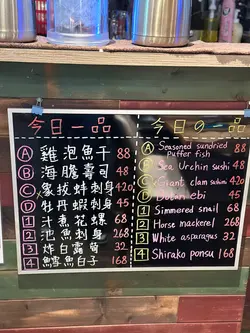 今日一品
Ⓐ 雞泡魚干 88
Ⓑ 海膽壽司 48
Ⓒ 象拔蚌刺身 420
Ⓓ 牡丹蝦刺身 45
1 汁煮花螺 68
2 池魚刺身 268
3 炸白露筍 32
4 鱈魚白子 168
今日の一品
Ⓐ Seasoned sundried Puffer fish 88
Ⓑ Sea Urchin sushi 48
Ⓒ Giant clam sashimi 420
Ⓓ Botan ebi 45
1 Simmered snail 68
2 Horse mackerel 268
3 White asparagus 32
4 Shirako ponsu 168